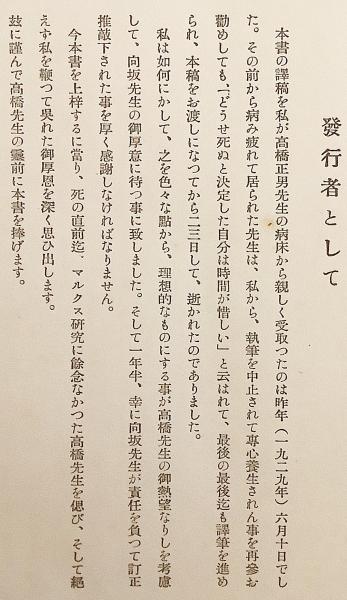 發行者として
本書の譯稿を私が高橋正男先生の病床から親しく受取つたのは昨年(一九二九年)六月十日でし
た。その前から病み疲れて居られた先生は、私から、執筆を中止されて專心養生されん事を再參お
勸めしても、「どうせ死ぬと決定した自分は時間が惜しい」と云はれて、最後の最後迄も譯筆を進め
られ、本稿をお渡しになつてから二三日して、逝かれたのでありました。
私は如何にかして、之を色々な點から、理想的なものにする事が高橋先生の御熱望なりしを考慮
して、向坂先生の御厚意に待つ事に致しました。そして一年半、幸に向坂先生が責任を負つて訂正
推敲下された事を厚く感謝しなければなりません。
今本書を上梓するに當り、死の直前迄、マルクス研究に餘念なかつた高橋先生を偲び、そして絕
えず私を鞭つて吳れた御厚恩を深く思ひ出します。
玆に謹んで高橋先生の靈前に本書を捧げます。